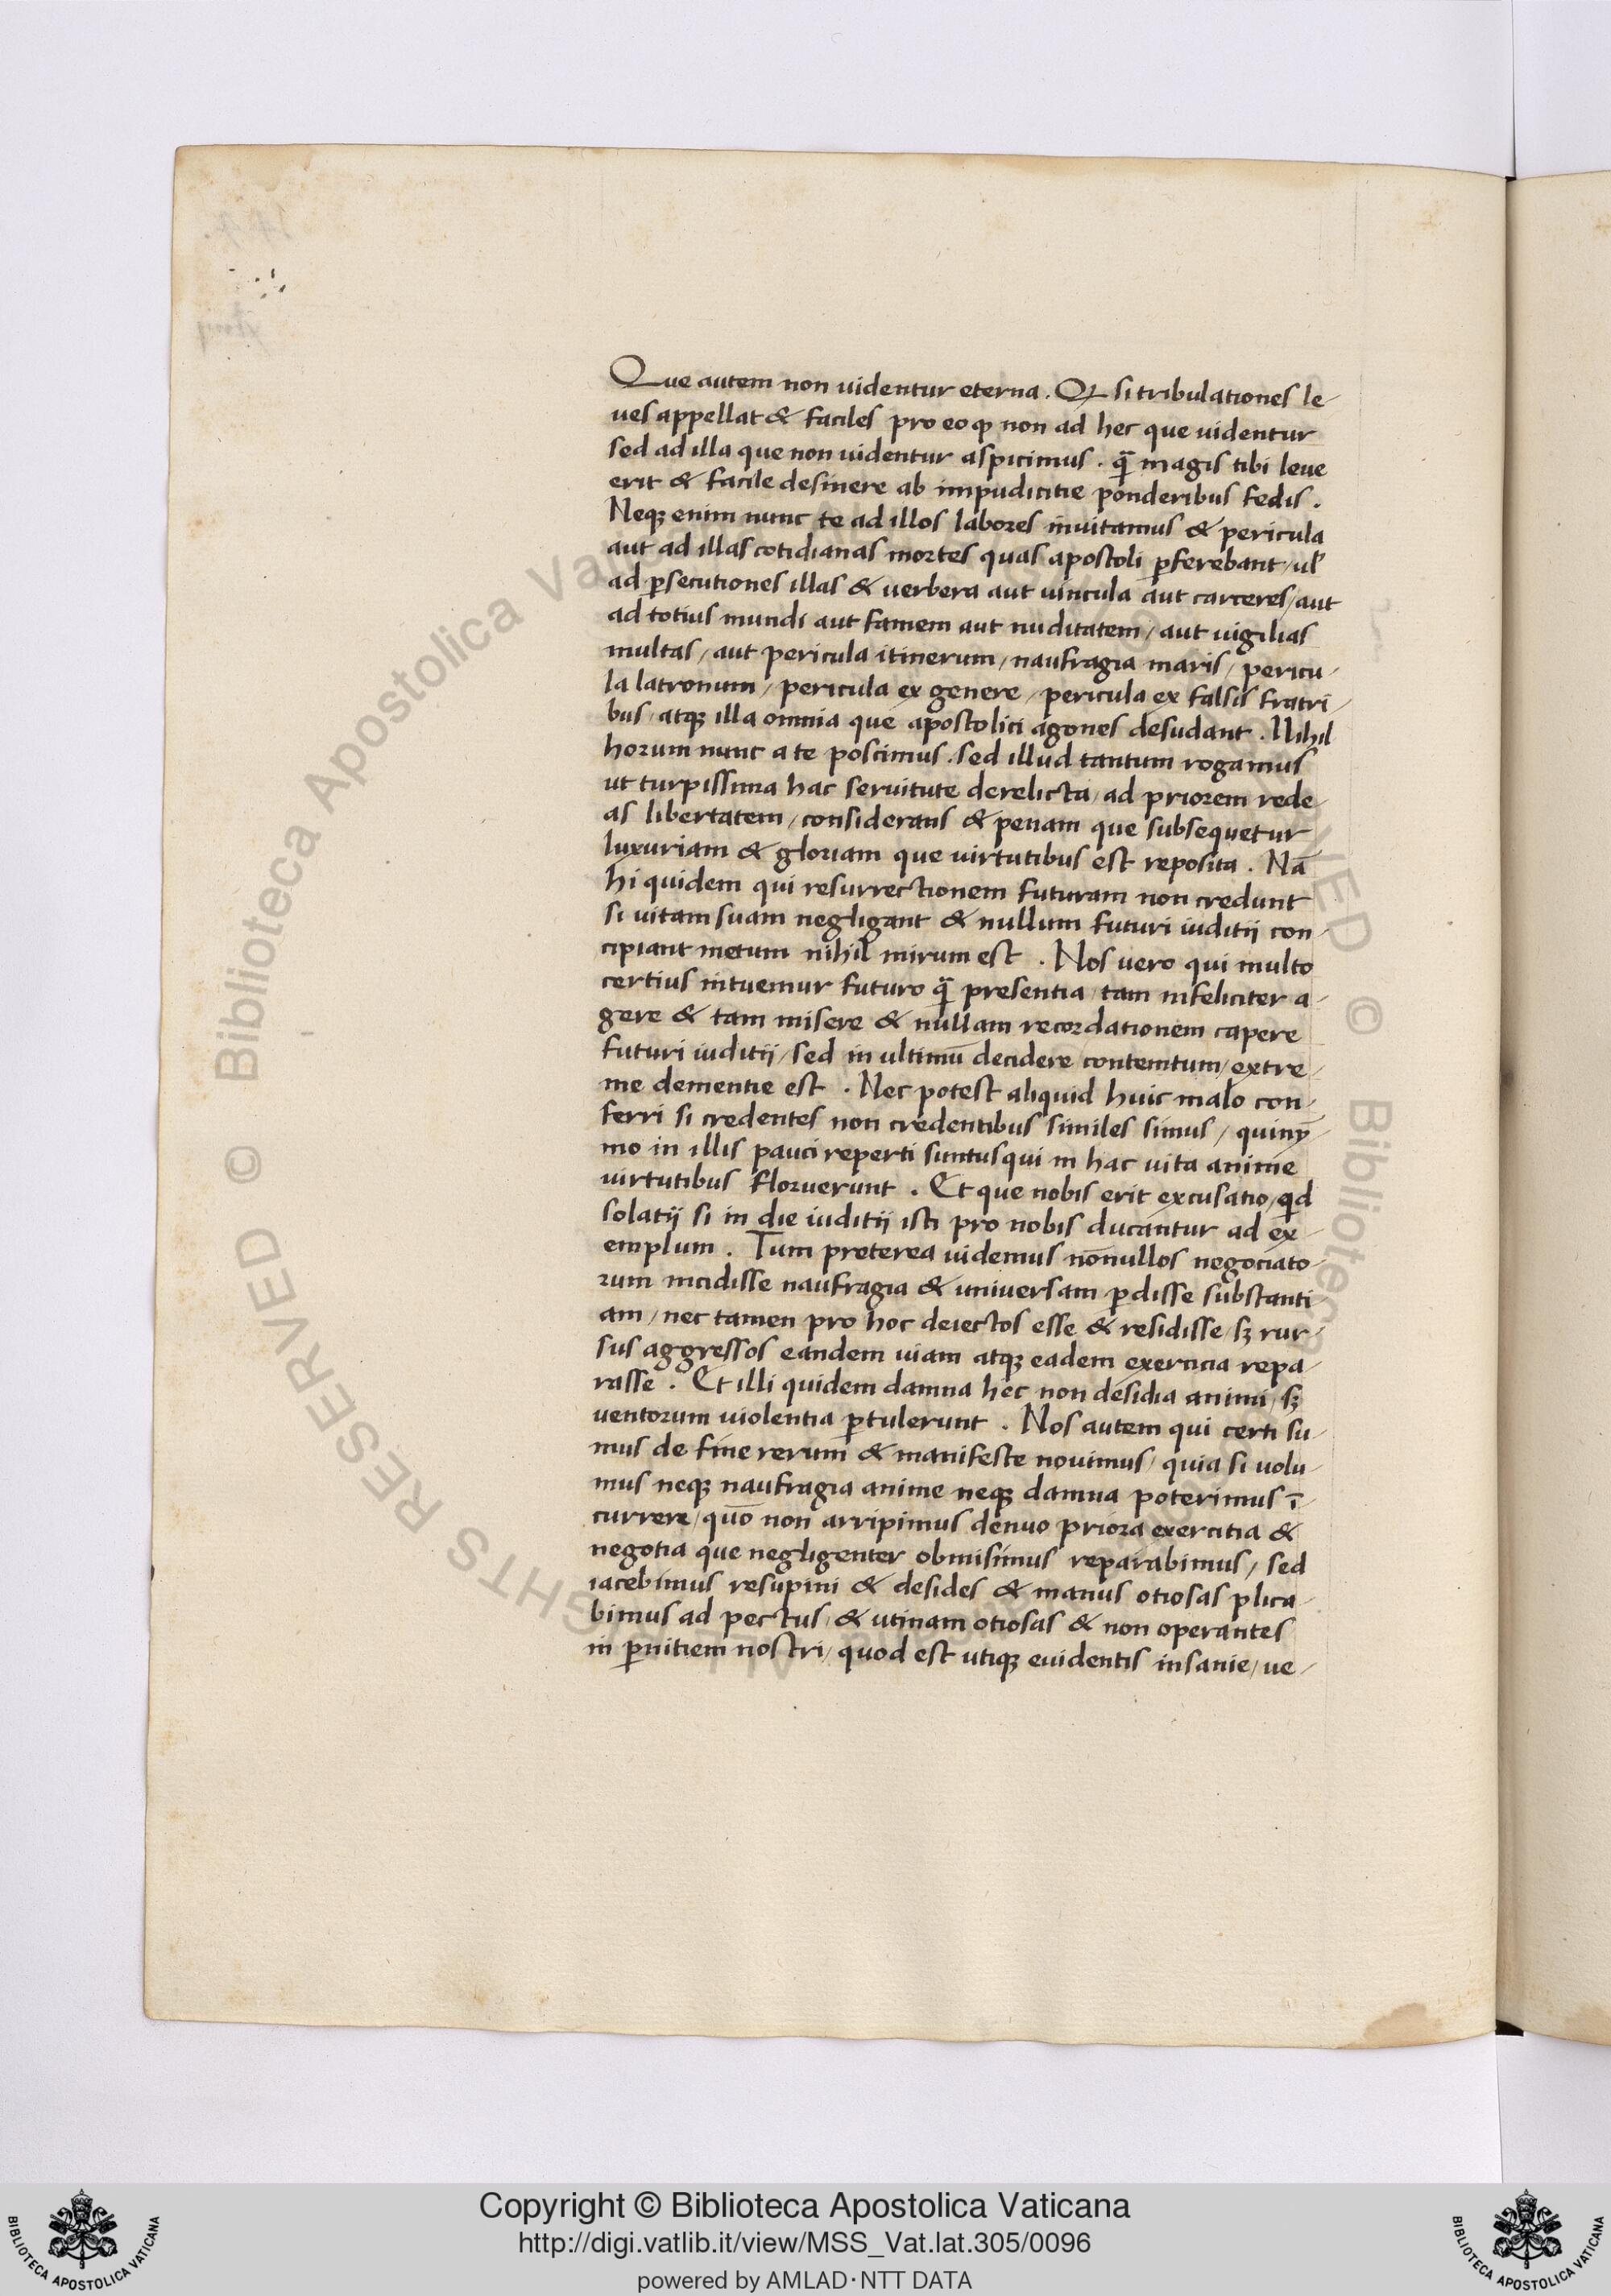 Que autem non uidentur eterna. Qꝙ si tribulationes le-
ues appellat & faciles pro eo ꝙ non ad hec que uidentur
sed ad illa que non uidentur aspicimus. q̄ magis tibi leue
erit & facile desinere ab impudicitie ponderibus fedis.
Neqꝫ enim nunc te ad illos labores inuitamus & pericula
aut ad illas cotidianas mortes quas apostoli ꝑferebant / ul̓
ad ꝑsecutiones illas & uerbera aut uincula aut carceres / aut
ad totius mundi aut famem aut nuditatem / aut uigilias
multas / aut pericula itinerum / naufragia maris / pericu-
la latronum / pericula ex genere / pericula ex falsis fratri-
bus / atqꝫ illa omnia que apostolici agones desudant. Nihil
horum nunc a te poscimus. sed illud tantum rogamus
ut turpissima hac seruitute derelicta / ad priorem rede-
as libertatem / considerans & penam que subsequetur
luxuriam & gloriam que uirtutibus est reposita. Nā
hi quidem qui resurrectionem futuram non credunt
si uitam suam negligant & nullum futuri iuditii con-
cipiant metum nihil mirum est. Nos uero qui multo
certius intuemur futuro q̄ presentia / tam infeliciter a-
gere & tam misere & nullam recordationem capere
futuri iuditii / sed in ultimū decidere contemtum / extre-
me dementie est. Nec potest aliquid huic malo con-
ferri si credentes non credentibus similes simus / quiny-
mo in illis pauci reperti sunt usqui in hac uita anime
uirtutibus floruerunt. Et que nobis erit excusatio / qd
solatij si in die iuditii isti pro nobis ducantur ad ex-
emplum. Tum preterea uidemus nōnullos negociato-
rum incidisse naufragia & uniuersam ꝑdisse substanti-
am / nec tamen pro hoc deiectos esse & residisse / sꝫ rur-
sus aggressos eandem uiam atqꝫ eadem exercicia repa-
rasse. Et illi quidem damna hec non desidia animi / sꝫ
uentorum uiolentia ꝑtulerunt. Nos autem qui certi su-
mus de fine rerum & manifeste nouimus / quia si uolu-
mus neqꝫ naufragia anime neqꝫ damna poterimus ī-
currere / quō non arripimus denuo priora exercitia &
negotia que negligenter obmisimus reparabimus / sed
iacebimus resupini & desides & manus otiosas plica-
bimus ad pectus / & utinam otiosas & non operantes
in ꝑnitiem nostri / quod est utiqꝫ euidentis insanie / ue-
© Biblioteca Apostolica Vaticana
ALL RIGHTS RESERVED
Copyright © Biblioteca Apostolica Vaticana
http://digi.vatlib.it/view/MSS_Vat.lat.305/0096
powered by AMLAD·NTT DATA
BIBLIOTECA APOSTOLICA VATICANA
BIBLIOTECA APOSTOLICA VATICANA